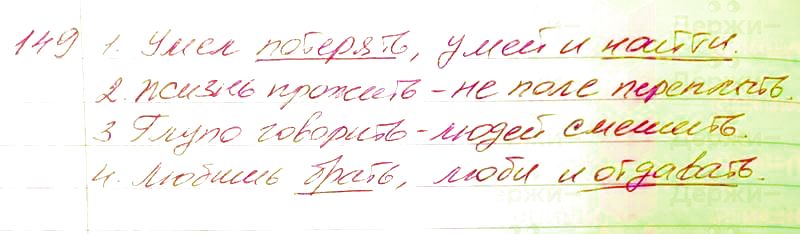 149 1. Умел потерять, умей и найти.
2. Жизнь прожить - не поле переплыть.
3 Глупо говорить - людей смешить.
4. Любишь брать, люби и отдавать.